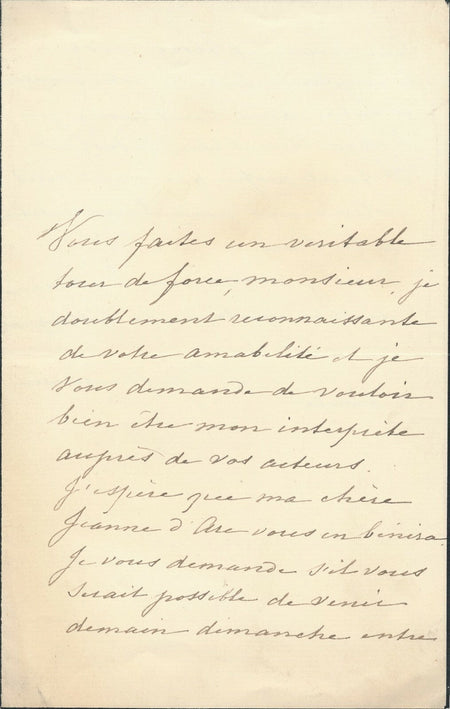 Vous faites un veritable
tour de force, monsieur, je
doublement reconnaissante
de votre amabilité et je
vous demande de vouloir
bien être mon interprète
auprès de vos acteurs.
J'espère que ma chère
Jeanne d'Arc vous en bénira.
Je vous demande s'il vous
serait possible de venir
demain dimanche entre